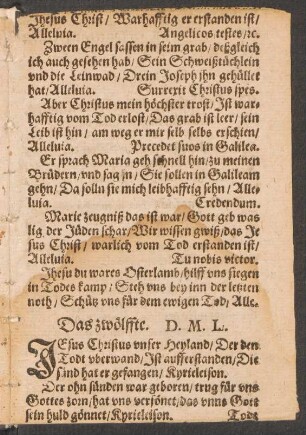 Jhesus Christ / Warhafftig er erstanden ist /
Alleluia. Angelicos testes / ꝛc.
Zween Engel sassen in seim grab / deßgleich
ich auch gesehen hab / Sein Schweißtüchlein
vnd die Leinwad / Drein Joseph jhn gehüllet
hat / Alleluia. Surrexit Christus spes.
Aber Christus mein höchster trost / Ist war-
hafftig vom Tod erlost / Das grab ist leer / sein
Leib ist hin / am weg er mir selb selbs erschien /
Alleluia. Precedet suos in Galilea.
Er sprach Maria geh schnell hin / zu meinen
Brüdern / vnd sag jn / Sie sollen in Galileam
gehn / Da solln sie mich leibhafftig sehn / Alle-
luia. Credendum.
Marie zeugniß das ist war / Gott geb was
lig der Jüden schar / Wir wissen gwiß / das Je
sus Christ / warlich vom Tod erstanden ist /
Alleluia. Tu nobis victor.
Jhesu du wares Osterlamb / hilff vns siegen
in Todes kamp / Steh vns bey inn der letzten
noth / Schütz vns für dem ewigen Tod / Alle.
Das zwölffte. D. M. L.
JEsus Christus vnser Heyland / Der den
Todt vberwand / Ist aufferstanden / Die
sünd hat er gefangen / Kyrieleison.
Der ohn sünden war geboren / trug für vns
Gottes zorn / hat vns versönet / das vnns Gott
sein huld gönnet / Kyrieleison. Todt